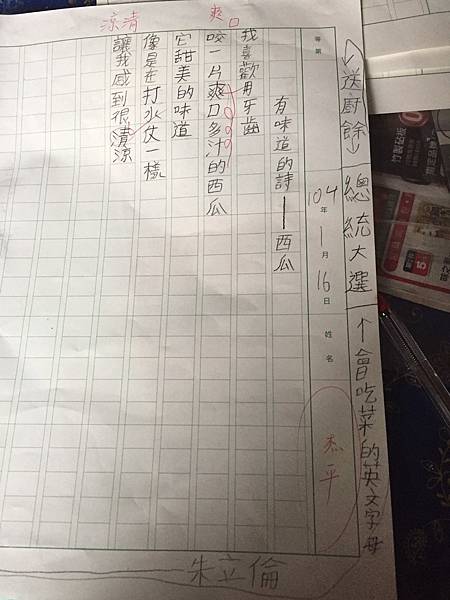 ↙送廚餘↘總統大選↑會吃菜的英文字母
等第
104年1月16日
姓名
杰平
有味道的詩——西瓜
我喜歡用牙齒
咬一片爽口多汁的西瓜
爽口
它甜美的味道
像是在打水仗一樣
讓我感到很清涼
清涼
朱立倫
竹製砧板